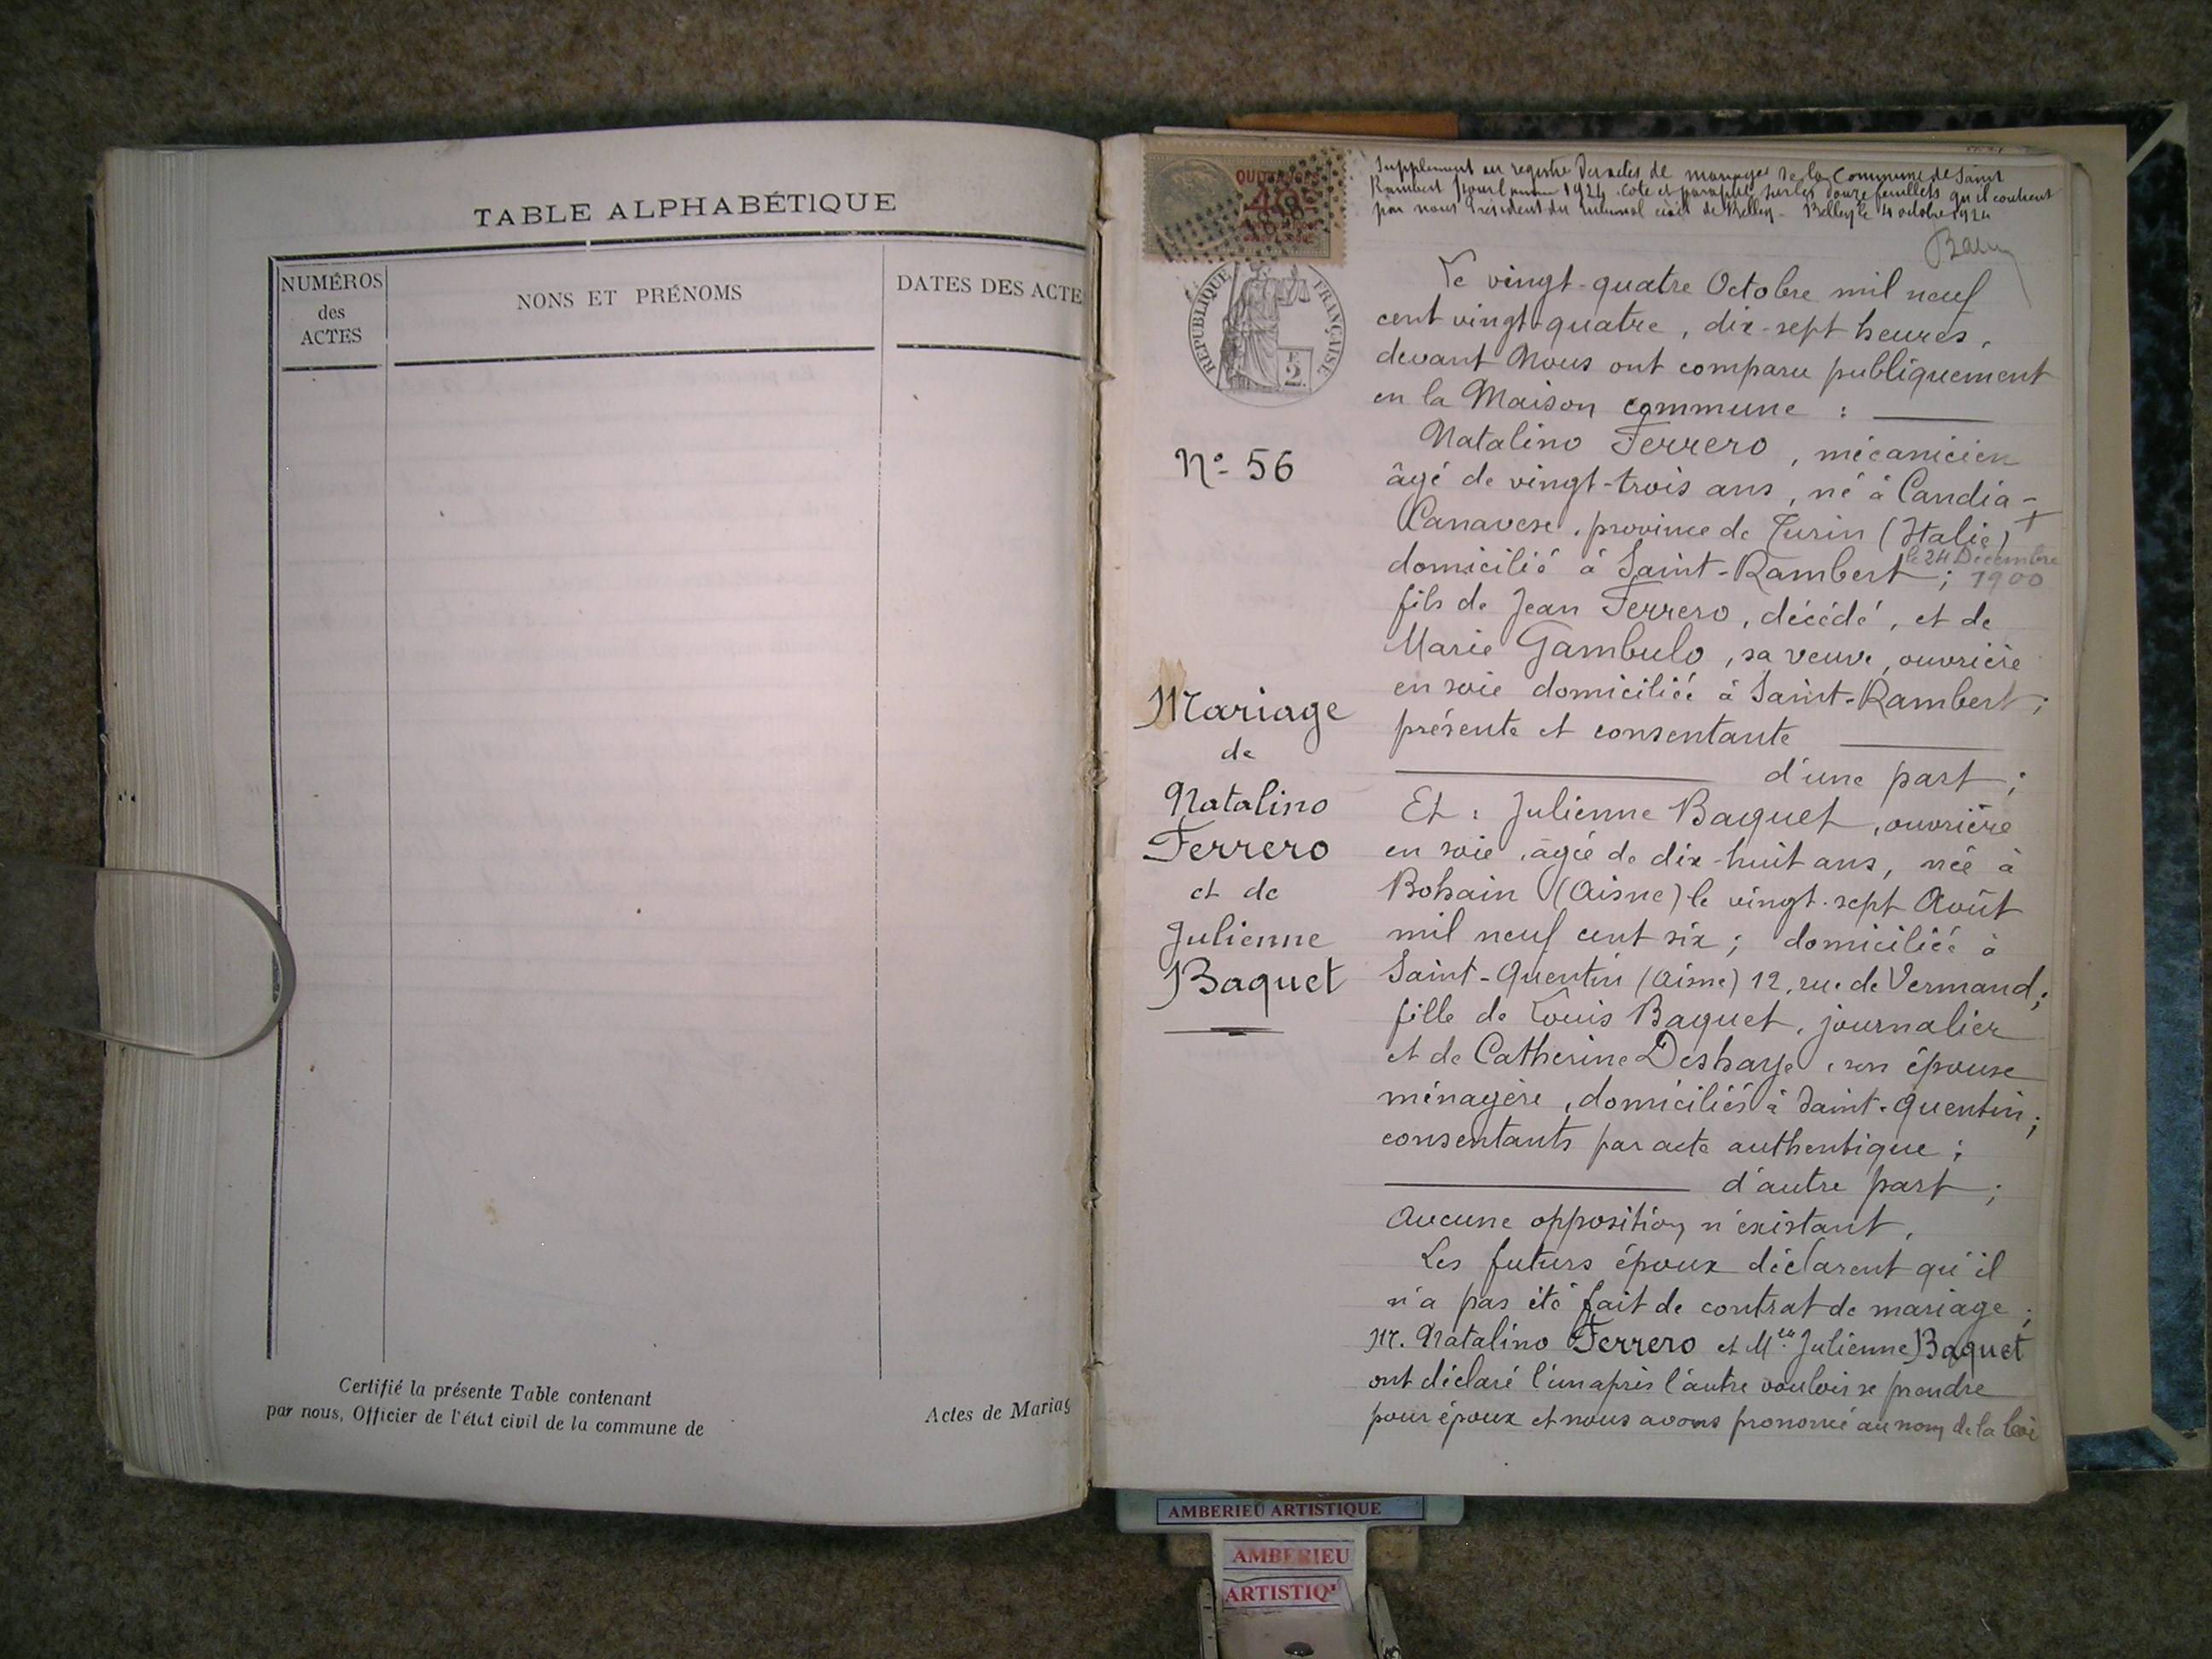 TABLE ALPHABÉTIQUE
NUMÉROS
des
ACTES
NONS ET PRÉNOMS
DATES DES ACTE
Certifié la présente Table contenant
par nous, Officier de l'état civil de la commune de
Actes de Mariag
Supplément au registre des actes de mariages de la Commune de Saint
Rambert pour l'année 1924. Coté et paraphé sur les douze feuillets qu'il contient
par nous Président du Tribunal civil de Belley - Belley le 4 octobre 1924
QUITTANCES
RÉPUBLIQUE FRANÇAISE
N° 56
Mariage
de
Natalino
Ferrero
et de
Julienne
Baquet
Le vingt-quatre Octobre mil neuf
cent vingt-quatre, dix-sept heures,
devant Nous ont comparu publiquement
en la Maison commune :
Natalino Ferrero, mécanicien
âgé de vingt-trois ans, né à Candia-
Canavese, province de Turin (Italie) +
le 24 Décembre
1900
domicilié à Saint-Rambert ;
fils de Jean Ferrero, décédé, et de
Marie Gambulo, sa veuve, ouvrière
en soie domiciliée à Saint-Rambert ;
présente et consentante
d'une part ;
Et : Julienne Baquet, ouvrière
en soie, âgée de dix-huit ans, née à
Bohain (Aisne) le vingt-sept Août
mil neuf cent six ; domiciliée à
Saint-Quentin (Aisne) 12, rue de Vermand ;
fille de Louis Baquet, journalier
et de Catherine Deshaye, son épouse
ménagère, domiciliés à Saint-Quentin ;
consentants par acte authentique ;
d'autre part ;
Aucune opposition n'existant,
Les futurs époux déclarent qu'il
n'a pas été fait de contrat de mariage ;
M. Natalino Ferrero et Mlle Julienne Baquet
ont déclaré l'un après l'autre vouloir se prendre
pour époux et nous avons prononcé au nom de la loi
AMBERIEU ARTISTIQUE
AMBERIEU
ARTISTIQ